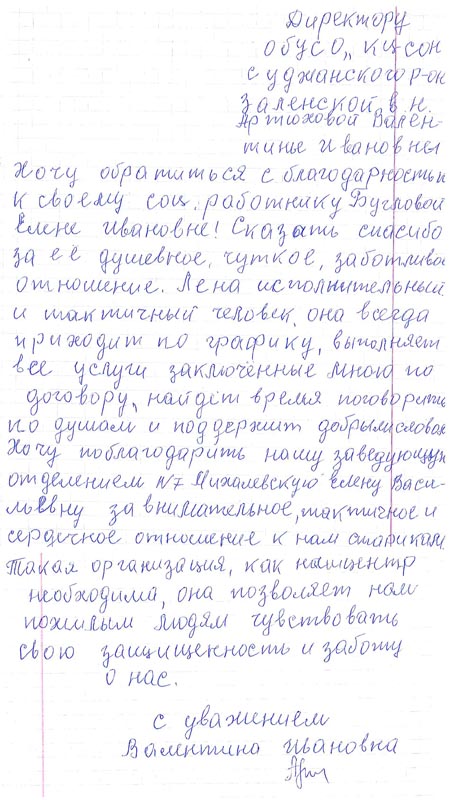 Директору
ОБУСО „КЦСОН
Суджанского р-он
Заленской в н.
Артюховой Вален-
тины Ивановны
Хочу обратиться с благодарностью
к своему соц. работнику Бугловой
Елене Ивановне! Сказать спасибо
за её душевное, чуткое, заботливое
отношение. Лена исполнительный
и тактичный человек, она всегда
приходит по графику, выполняет
все услуги заключённые мною по
договору, найдёт время поговорить
по душам и поддержит добрым словом
Хочу поблагодарить нашу заведующую
отделением N7 Михалевскую Елену Васи-
льевну за внимательное, тактичное и
сердечное отношение к нам старикам.
Такая организация, как наш центр
необходима, она позволяет нам
пожилым людям чувствовать
свою защищенность и заботу
о нас.
С уважением
Валентина Ивановна